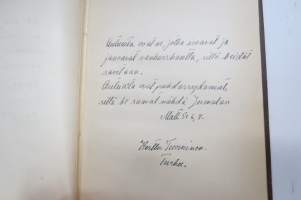 Autuaita ovat ne, jotka isoavat ja
janoavat vanhurskautta, sillä heidät
ravitaan.
Autuaita ovat puhdassydämiset,
sillä he saavat nähdä Jumalan
Matt. 5: 6, 8.
Hertta Tuominen.
Turku.